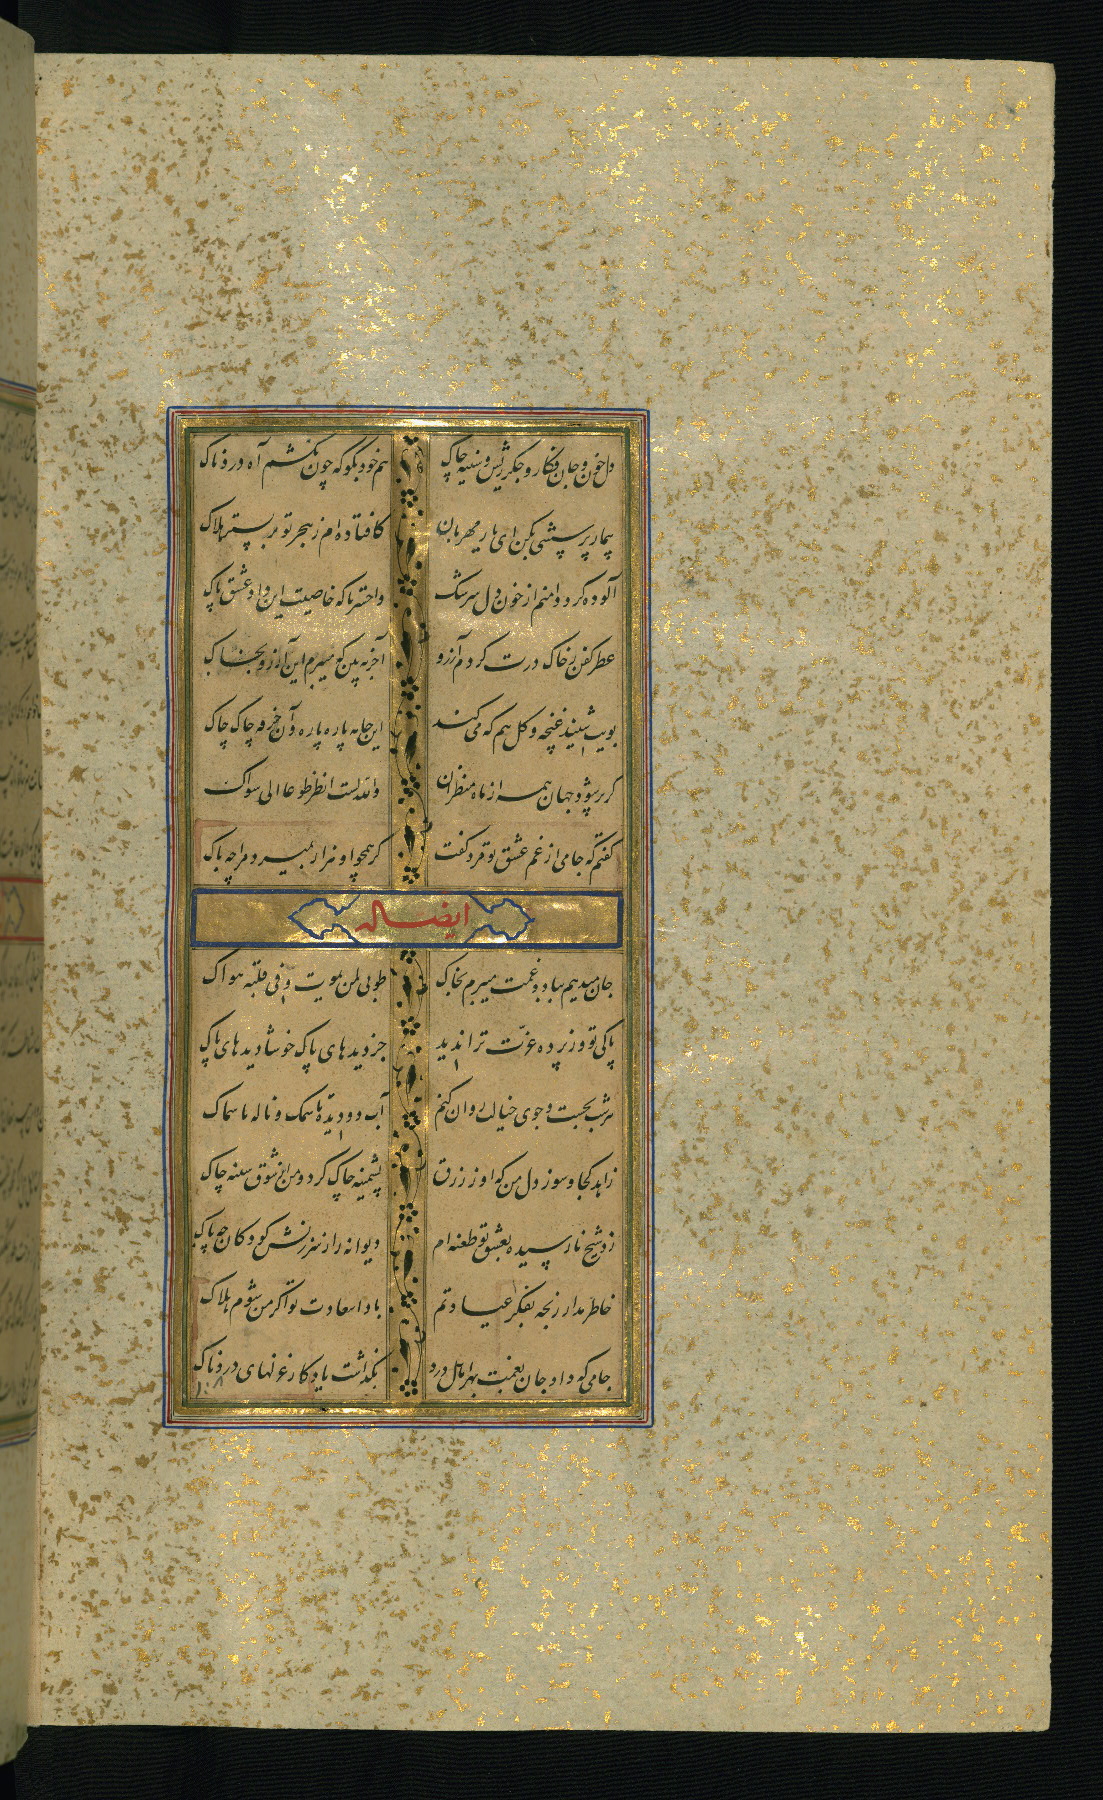 دل خون و جان فکار و جگر ریش و سینه چاک
هم خود بگو که چون نکشم آه دردناک
بیمار پرسشی بکن ای یار مهربان
کافتاده‌ام ز هجر تو بر بستر هلاک
آلوده کرد دامنم از خون دل سرشک
واحسرتا که خاصیت این داد عشق پاک
عطر کفن ز خاک درت کردم آرزو
آخر ببین که میبرم این آرزو بخاک
بویت شنید غنچه و گل هم که می‌کنند
این جامه پاره پاره و آن خرقه چاک چاک
گر پر شود جهان همه از ماه منظران
والله لست انظر طوعا الی سواک
گفتم که جامی از غم عشق تو مرد گفت
گر همچو او هزار بمیرد مرا چه باک
ایضا له
جان میدهم بباد و غمت میبرم بخاک
طوبی لمن یموت و فی قلبه هواک
پاکی تو و ز پرده عزت ترا ندید
جز دیدهای پاک خوشا دیدهای پاک
هر شب بجست و جوی خیالت روان کنم
آب دو دیده تا سمک و ناله تا سماک
زاهد کجا و سوز دل من کو از زرق
پشمینه چاک کرد و من از شوق سینه چاک
زد شیخ نارسیده بعشق تو طعنه‌ام
دیوانه را ز سرزنش کودکان چه باک
خاطر مدار رنجه بفکر عیادتم
بادا سعادت تو اگر من شوم هلاک
جامی که داد جان بغمت بهر اهل درد
بگذاشت یادگار غزلهای دردناک